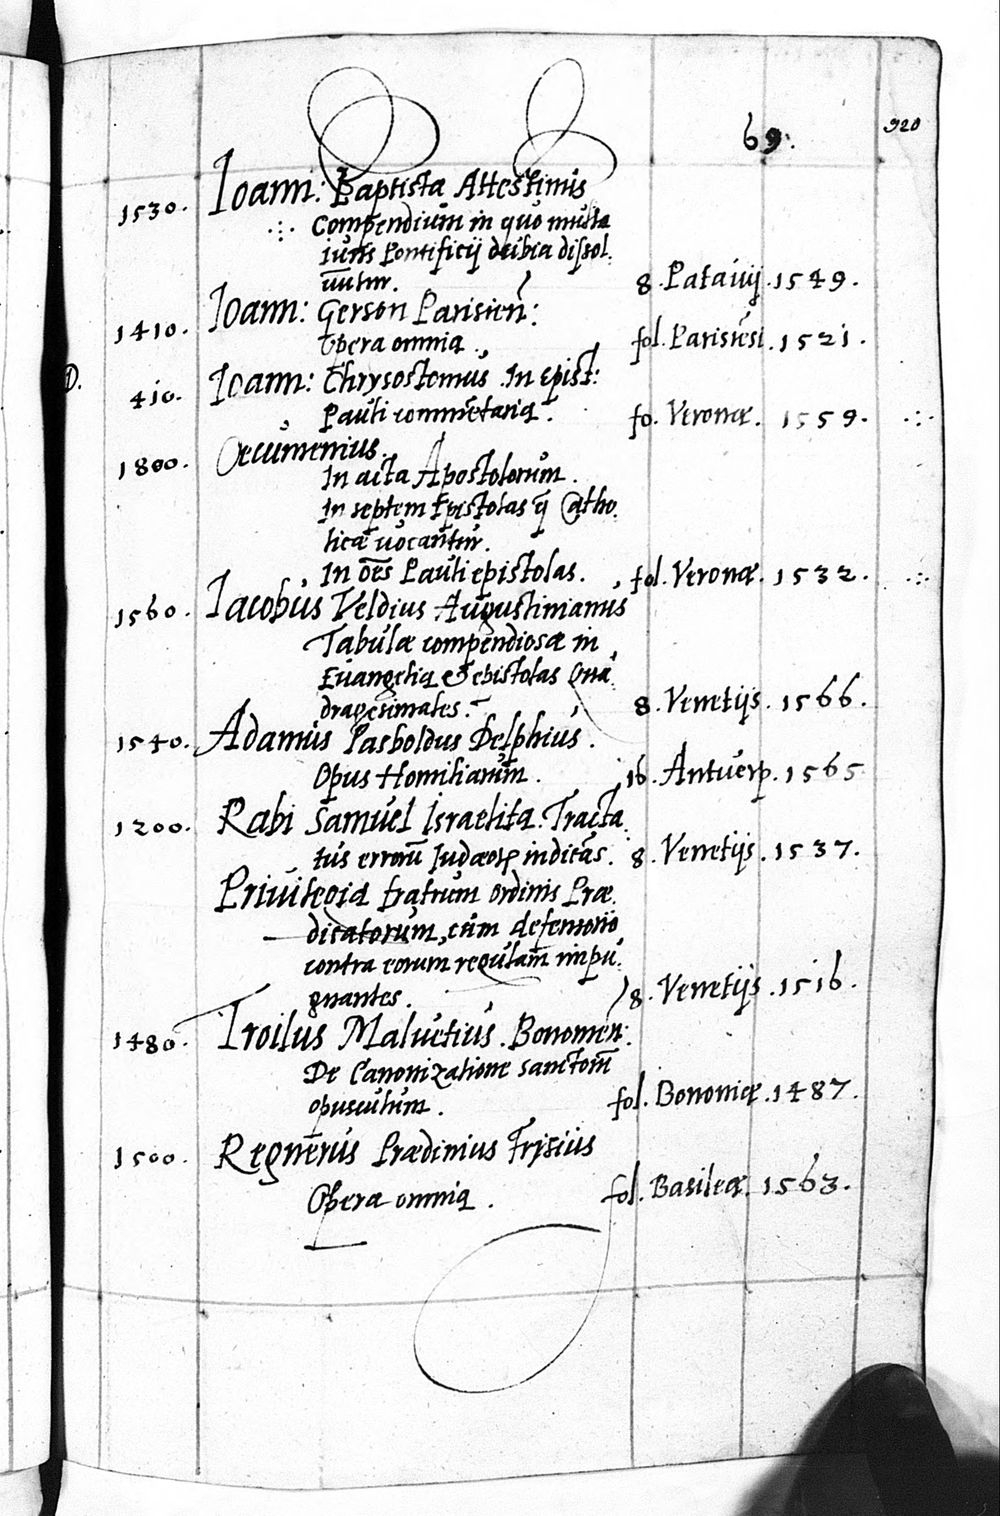 69.
920
1530. Ioann: Baptista Attestinus
Compendium in quo multa
iuris Pontificij dubia dissol
uutur. 8. Patauij. 1549.
1410. Ioann: Gerson Parisien:
Opera omnia. fol. Parisiesi. 1521.
D. 410. Ioann: Chrysostomus. In Epist:
Pauli commetaria. fo. Veronæ. 1559.
1800. Oecumenius.
In acta Apostolorum.
In septem Epistolas q̃ Catho
licæ uocantur.
In oẽs Pauli epistolas. fol. Veronæ. 1532.
1560. Iacobus Veldius Augustinianus
Tabulæ compendiosæ in
Euangelia & epistolas Qua
dragesimales. 8. Venetijs. 1566.
1540. Adamus Pasboldus Delphius.
Opus Homiliarum. 16. Antuerp. 1565
1200. Rabi Samuel Israelita. Tracta
tus errorũ Iudæoꝝ indicãs. 8. Venetijs. 1537.
Priuilegia fratrum ordinis Præ
dicatorum, cum defensorio
contra eorum regulam impu
gnantes. 8. Venetijs. 1516.
1480. Troilus Maluetius. Bonomen:
De Canonizatione sanctorũ
opusculum. fol. Bononiæ. 1487.
1500. Regnerus Prædinius Frysius
Opera omnia. fol. Basileæ. 1563.